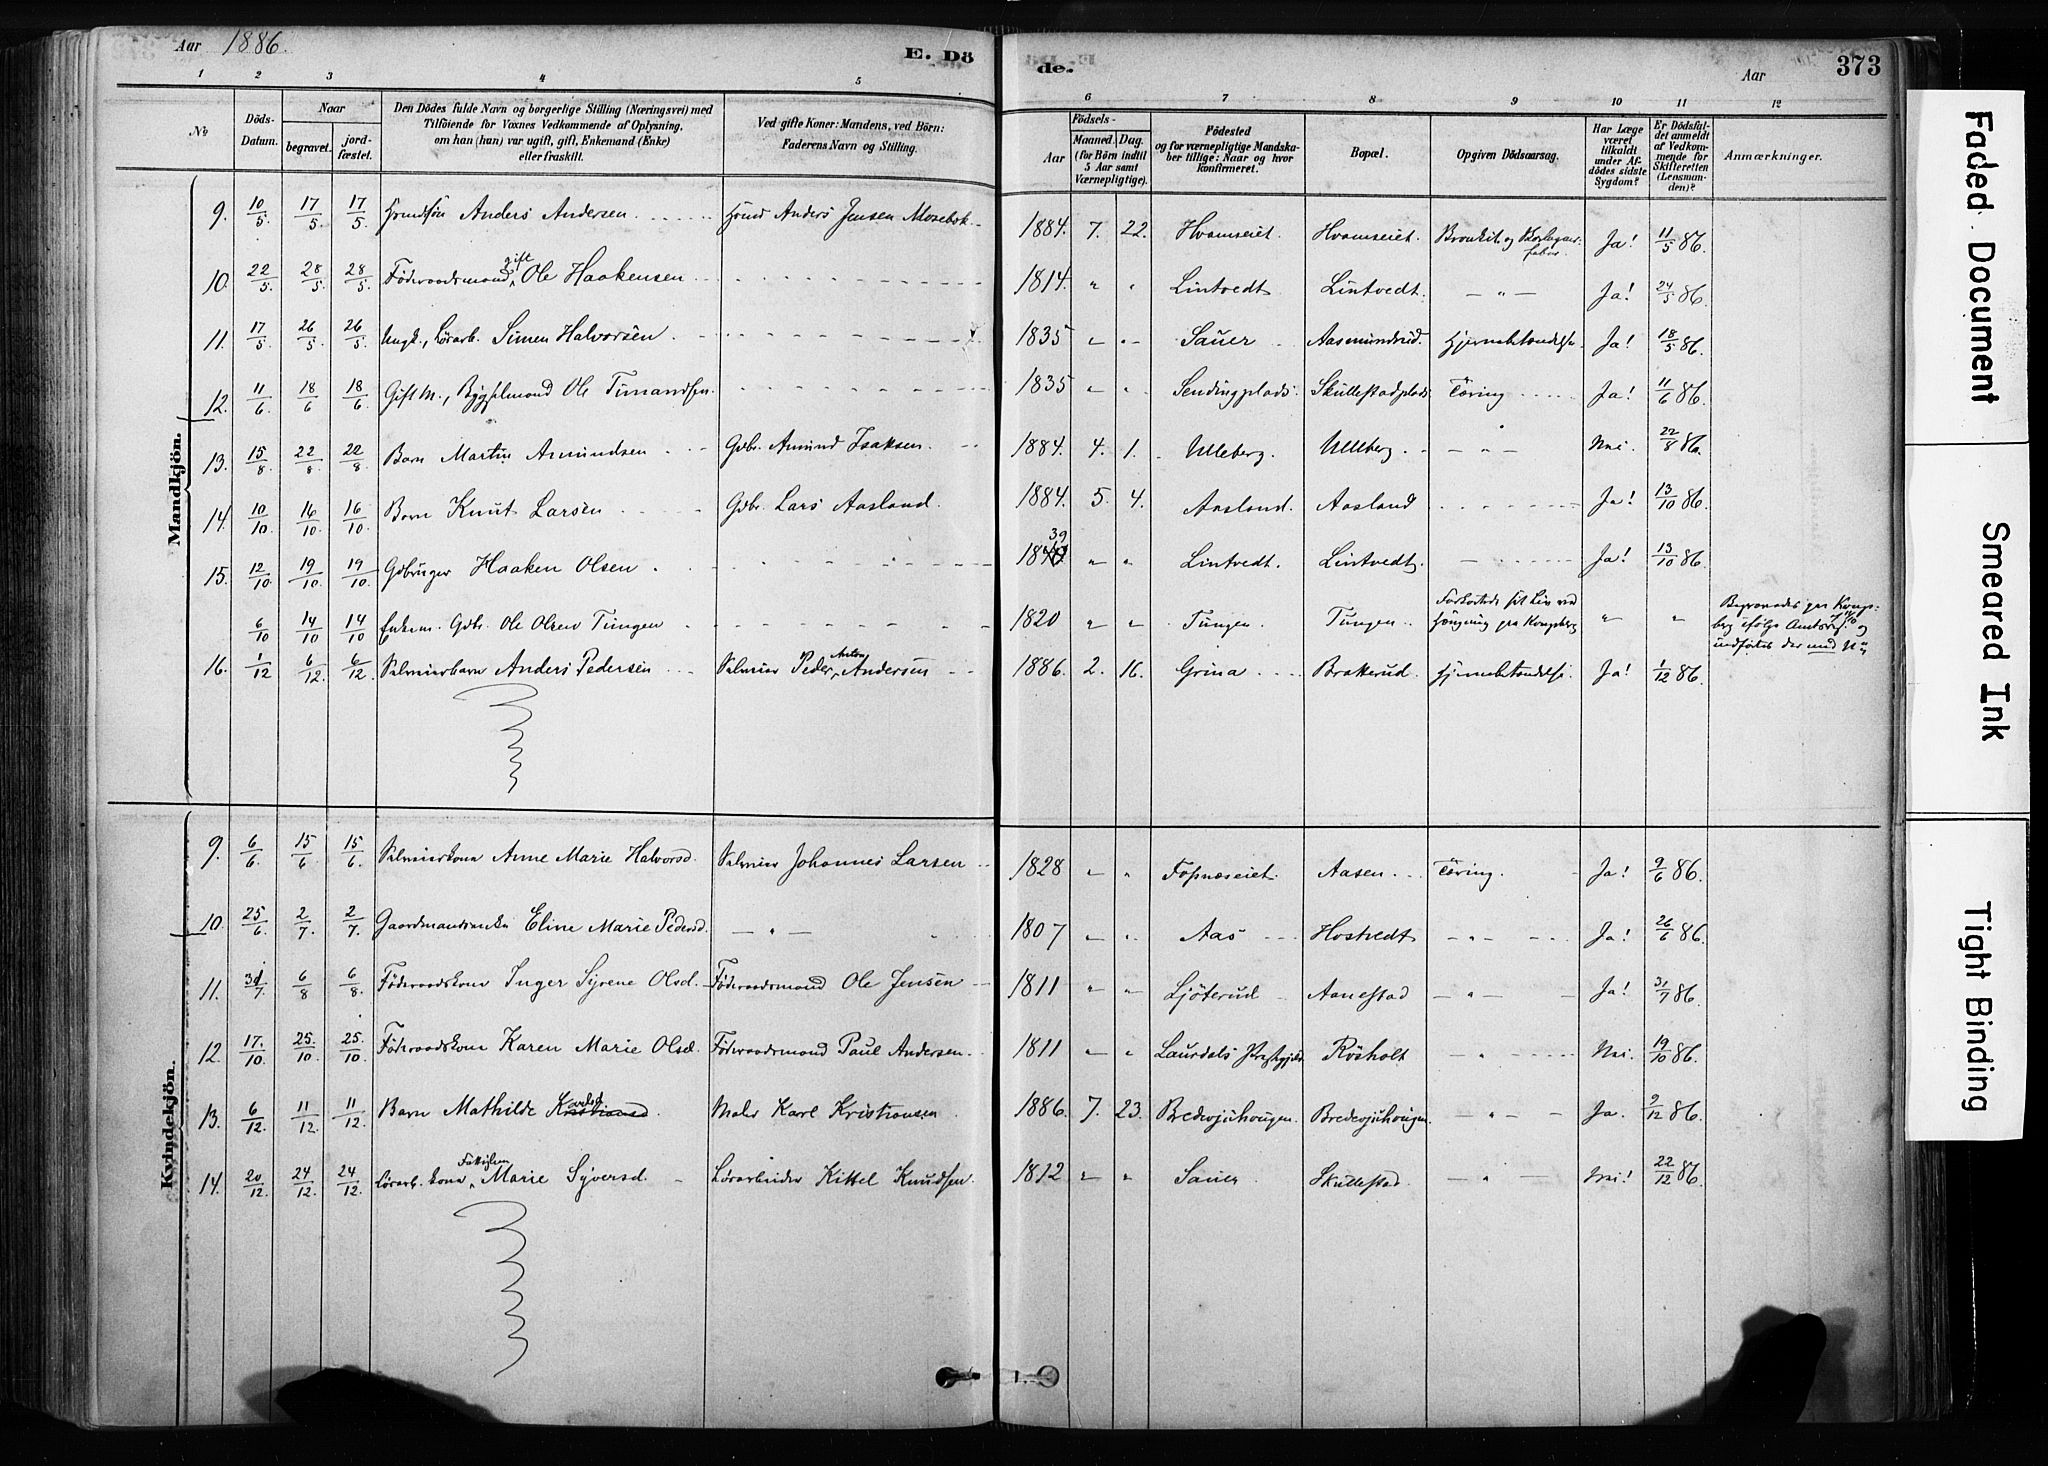 Aar 1886. E. Dö
de. Aar 373
1 2 3 4 5
6 7 8 9 10 11 12
No
Döds-Datum.
Naar
begravet. jordfæstet.
Den Dödes fulde Navn og borgerlige Stilling (Næringsvei) med
Tilföiende for Voxnes Vedkommende af Oplysning,
om han (hun) var ugift, gift, Enkemand (Enke)
eller fraskilt.
Ved gifte Koner: Mandens, ved Börn:
Faderens Navn og Stilling.
Födsels-
Aar
Maaned. Dag.
(for Börn indtil
5 Aar samt
Værnepligtige).
Födested
og for værnepligtige Mandskaber
tillige: Naar og hvor
konfirmeret.
Bopæl.
Opgiven Dödsaarsag.
Har Læge
været
tilkaldt
under Afdödes
sidste
Sygdom?
Er Dödsfaldet
anmeldt
af Vedkommende
for
Skifteretten
(Lensmanden)?
Anmærkninger.
Mandkjön.
9. 10/5 17/5 17/5 Anders Andersen Anders Jensen 1884. 7. 22. Hvamseiet. Hvamseiet. Ja! 11/5 86.
10. 22/5 28/5 28/5 Föderaadsmand, gift Ole Haakensen 1814. " " Lintvedt Lintvedt. - " - Ja! 24/5 86.
11. 17/5 26/5 26/5 Ungk., Lörarb. Simen Halvorsen 1835 " " Sauer Aasmundrud. Hjernebetændelse. Ja! 18/5 86.
12. 11/6 18/6 18/6 Gift M., Bygselmand Ole 1835 " " Sendingplads. Skullestadplads Tæring Ja! 11/6 86.
13. 15/8 22/8 22/8 Barn Martin Asmundsen Gdbr. Asmund Isaksen. 1884. 4. 1. Ulleberg. Ulleberg. - " - Nei. 22/8 86.
14. 10/10 16/10 16/10 Barn Knut Larsen Gdbr. Lars Aasland. 1884. 5. 4. Aasland. Aasland Ja! 13/10 86.
15. 12/10 19/10 19/10 Gdbruger Haaken Olsen 1839 " " Lintvedt. Lintvedt. Ja! 13/10 86.
6/10 14/10 14/10 Enkem. Gdbr. Ole Olsen Tungen 1820 " " Tungen. Tungen. Forkortede sit Liv ved Hængning paa Kongsberg " "
16. 1/12 6/12 6/12 Selveierbarn Anders Pedersen Selveier Peder Anton Andersen 1886. 2. 16. Grina Brakerud. Hjernebetændelse. Ja! 1/12 86.
Kvindekjön.
9. 6/6 15/6 15/6 Selveierkone Anne Marie Halvorsd. Selveier Johannes Larsen 1828 " " Fosnæseiet. Aasen Tæring. Ja! 9/6 86.
10. 25/6 2/7 2/7 Gaardmandsenke Eline Marie Pedersd. - " - 1807 " " Aas Hostvedt - " - Ja! 26/6 86.
11. 31/7 6/8 6/8 Föderaadskone Inger Syrene Olsd. Föderaadsmand Ole Jensen 1811 " " Ljöterud Aanestad - " - Ja! 31/7 86.
12. 17/10 25/10 25/10 Föderaadskone Karen Marie Olsd. Föderaadsmand Paul Andersen. 1811 " " Laurdals Præstegjeld Rösholt - " - Nei. 19/10 86.
13. 6/12 11/12 11/12 Barn Mathilde Karlsd. Maler Karl Kristiansen 1886. 7. 23. Bredesjuhougen. Bredesjuhougen. - " - Ja. 9/12 86.
14. 20/12 24/12 24/12 Lörarb. kone, Fattiglem Marie Syversd. Lörarbeider Kittel Knudsen. 1812 " " Sauer Skullestad. - " - Nei! 22/12 86.
1.
Faded Document
Smeared Ink
Tight Binding